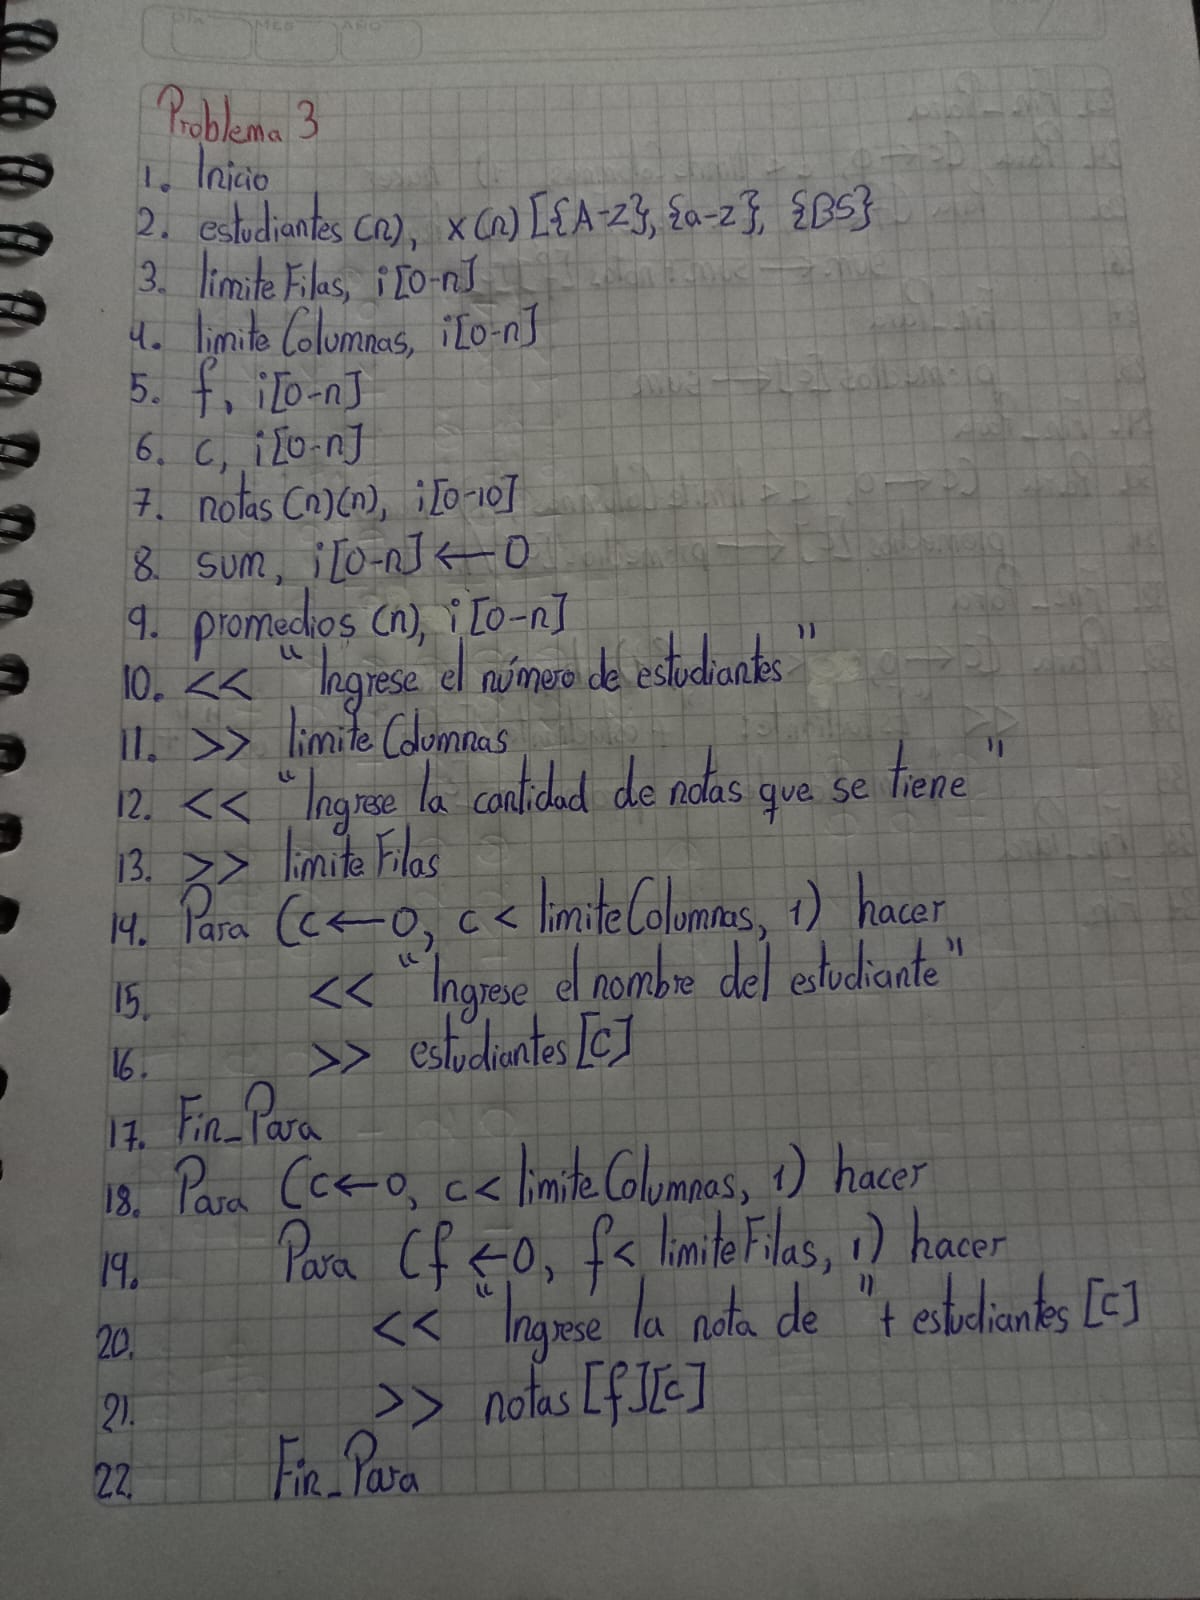 Problema 3
1. Inicio
2. estudiantes (n), x(n) [{A-Z}, {a-z}, {BS}
3. limiteFilas, i[0-n]
4. limiteColumnas, i[0-n]
5. f, i[0-n]
6. c, i[0-n]
7. notas (n)(n), i[0-10]
8. sum, i[0-n] ← 0
9. promedios (n), i[0-n]
10. << "Ingrese el número de estudiantes"
11. >> limiteColumnas
12. << "Ingrese la cantidad de notas que se tiene"
13. >> limiteFilas
14. Para (c ← 0, c < limiteColumnas, 1) hacer
15. << "Ingrese el nombre del estudiante"
16. >> estudiantes [c]
17. Fin_Para
18. Para (c ← 0, c < limiteColumnas, 1) hacer
19. Para (f ← 0, f < limiteFilas, 1) hacer
20. << "Ingrese la nota de " + estudiantes [c]
21. >> notas [f][c]
22. Fin_Para